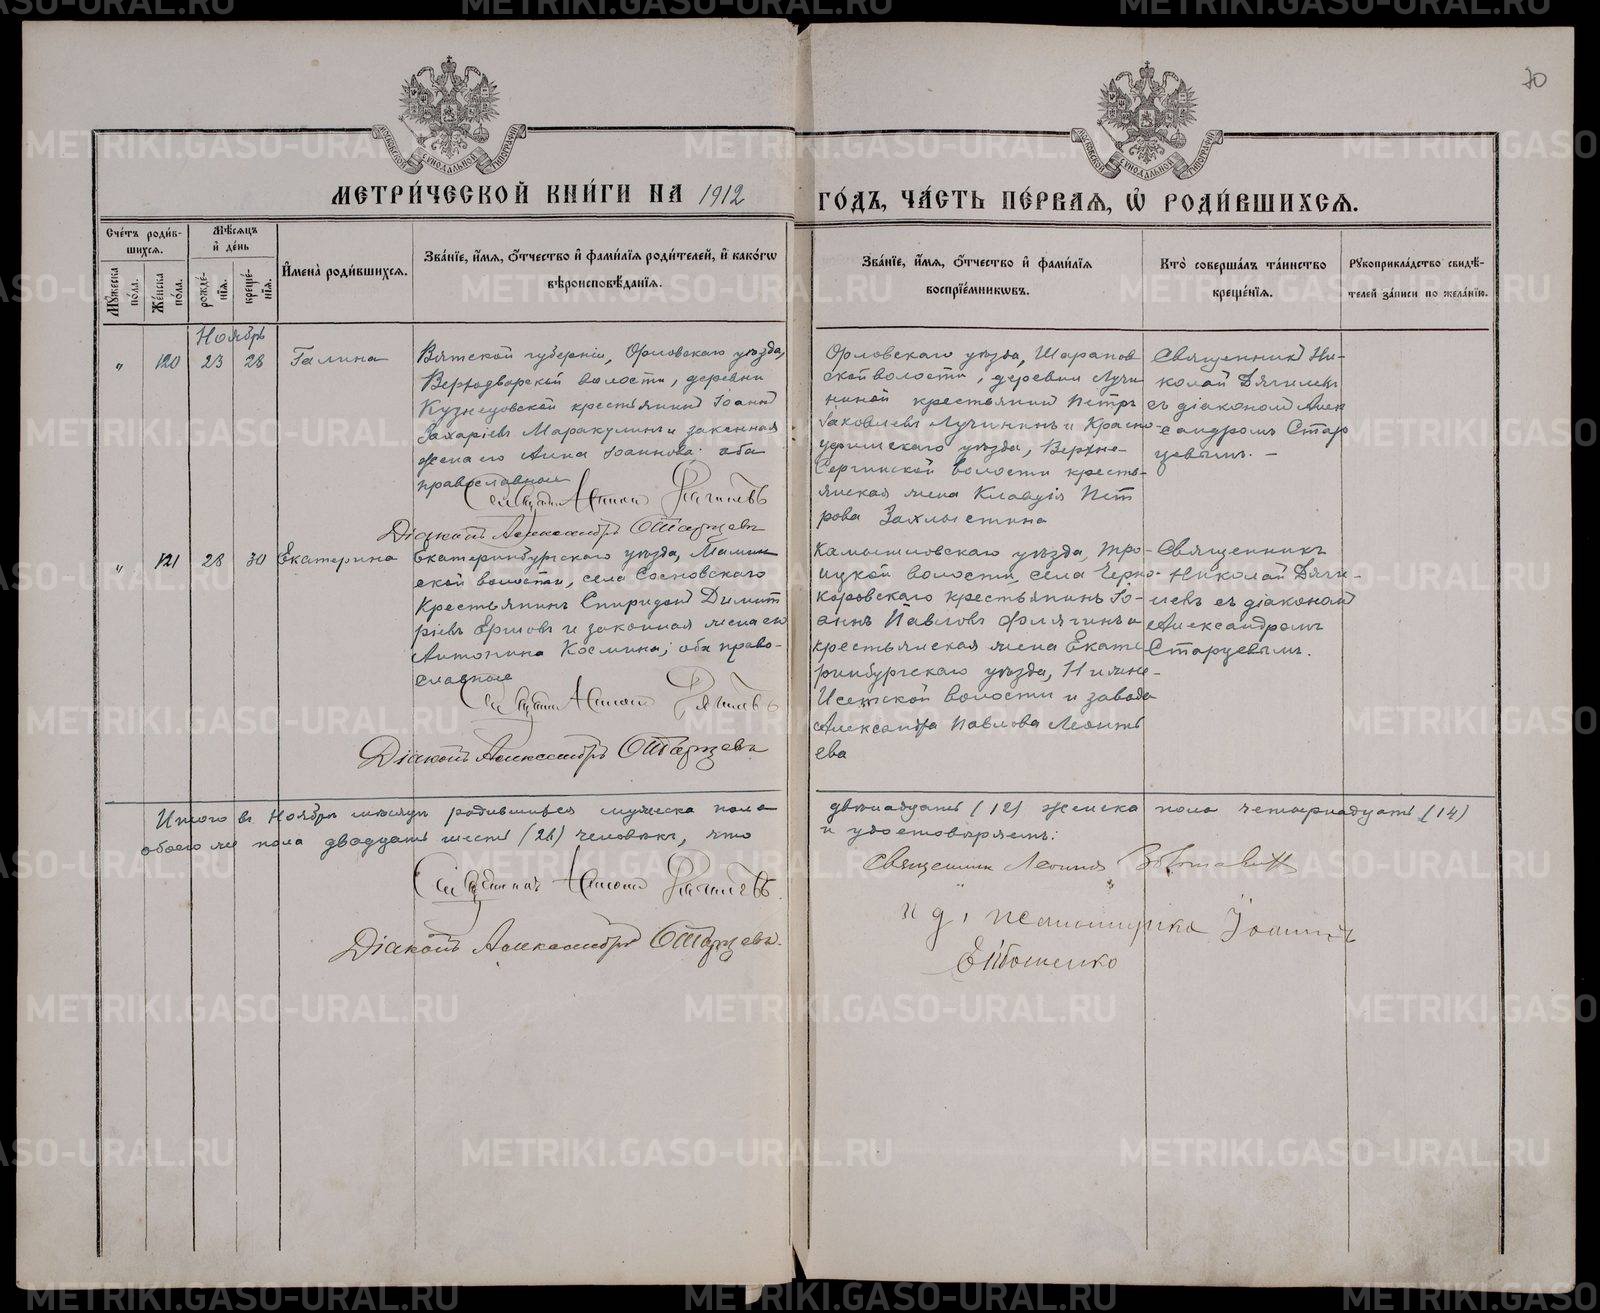 70
МЕТРИ́ЧЕСКОЙ КНИ́ГИ НА 1912 ГО́ДЪ, ЧА́СТЬ ПЕ́РВАЯ, Ѡ҆ РОДИ́ВШИХСЯ.
Сче́тъ роди́в-
шихся.
Мꙋ́жеска пола.
Же́нска пола.
Мѣ́сяцъ
и҆ де́нь
рожде́-
нїя.
креще́-
нїя.
И҆мена̀ роди́вшихся.
Зва́нїе, и҆́мя, ѻ҆́тчество и҆ фами́лїя роди́телей, и҆ како́гѡ
вѣроисповѣ́данїя.
Зва́нїе, и҆́мя, ѻ҆́тчество и҆ фами́лїя
воспрїе́мникѡвъ.
Кто̀ соверша́лъ та́инство
креще́нїя.
Рꙋкоприкла́дство свидѣ́-
телей за́писи по жела́нїю.
Ноябрь
„ 120 23 28 Галина
Вятской губерніи, Орловскаго уѣзда,
Верходворской волости, деревни
Кузнецовской крестьянинъ Іоаннъ
Захаріевъ Маракулинъ и законная
жена его Анна Іоаннова; оба
православные
Діаконъ Александръ Старцевъ
Орловскаго уѣзда, Шарапов
ской волости, деревни Лучи
ниной крестьянинъ Петръ
Іаковлевъ Лучининъ и Красно-
уфимскаго уѣзда, Верхне-
Сергинской волости кресть-
янская жена Клавдія Пет
рова Захлыстина
Священникъ Ни-
колай Дягилевъ
съ діакономъ Алек
сандромъ Стар
цевымъ. –
„ 121 28 30 Екатерина
Екатеринбургскаго уѣзда, Мамин
ской волости, села Сосновскаго
крестьянинъ Спиридонъ Димит
ріевъ Ершовъ и законная жена его
Антонина Космина; оба право-
славные
Діаконъ Александръ Старцевъ
Камышловскаго уѣзда, Тро-
ицкой волости, села Черно-
коровскаго крестьянинъ Іо-
аннъ Павловъ Флягинъ и
крестьянская жена Екате
ринбургскаго уѣзда, Нижне-
Исетской волости и завода
Александра Павлова Леонть
ева
Священникъ
Николай Дяги-
левъ съ діакономъ
Александромъ
Старцевымъ.
Итого въ Ноябрѣ мѣсяцѣ родившихся мужеска пола двѣнадцать (12) женска пола четырнадцать (14)
обоего же пола двадцать шесть (26) человѣкъ, что и удостовѣряемъ:
Діаконъ Александръ Старцевъ.
Священник Леонидъ
и д. псаломщика Іоаннъ
METRIKI.GASO-URAL.RU